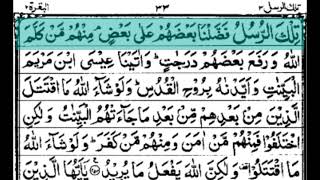 تلك الرسل ٣ ٣٣ البقرة ٢
تِلْكَ الرُّسُلُ فَضَّلْنَا بَعْضَهُمْ عَلٰى بَعْضٍ ۘ مِنْهُمْ مَّنْ كَلَّمَ
اللّٰهُ وَرَفَعَ بَعْضَهُمْ دَرَجٰتٍ ؕ وَاٰتَيْنَا عِيْسَى ابْنَ مَرْيَمَ
الْبَيِّنٰتِ وَاَيَّدْنٰهُ بِرُوْحِ الْقُدُسِ ؕ وَلَوْ شَآءَ اللّٰهُ مَا اقْتَتَلَ
الَّذِيْنَ مِنْۢ بَعْدِهِمْ مِّنْۢ بَعْدِ مَا جَآءَتْهُمُ الْبَيِّنٰتُ وَلٰكِنِ
اخْتَلَفُوْا فَمِنْهُمْ مَّنْ اٰمَنَ وَمِنْهُمْ مَّنْ كَفَرَ ؕ وَلَوْ شَآءَ اللّٰهُ
مَا اقْتَتَلُوْا ۫ وَلٰكِنَّ اللّٰهَ يَفْعَلُ مَا يُرِيْدُ ۧ يٰۤاَيُّهَا الَّذِيْنَ